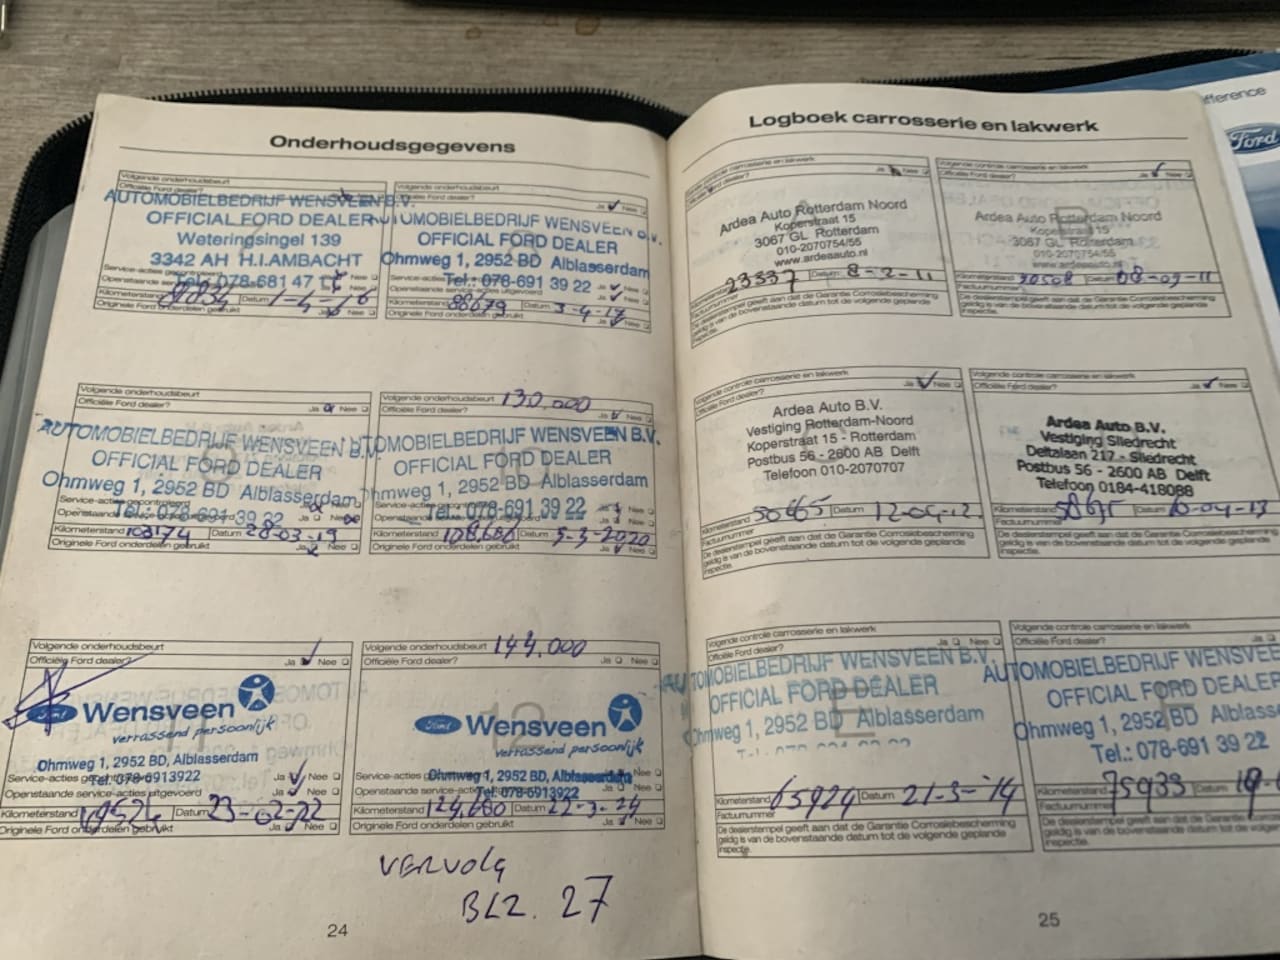 Onderhoudsgegevens
Volgende onderhoudsbeurt
Officiële Ford dealer? Ja Nee
AUTOMOBIELBEDRIJF WENSVEEN B.V.
OFFICIAL FORD DEALER
Weteringsingel 139
3342 AH H.I.AMBACHT
Tel. 078-681 47
Service-acties gecontroleerd
Openstaande service-acties
Kilometerstand Datum 1-4-16
Originele Ford onderdelen gebruikt Ja
Volgende onderhoudsbeurt
Officiële Ford dealer? Ja Nee
AUTOMOBIELBEDRIJF WENSVEEN B.V.
OFFICIAL FORD DEALER
Ohmweg 1, 2952 BD Alblasserdam
Tel.: 078-691 39 22
Openstaande service-acties uitgevoerd
Kilometerstand 88679 Datum 3-4-18
Originele Ford onderdelen gebruikt Ja Nee
Volgende onderhoudsbeurt
Officiële Ford dealer? Ja Nee
AUTOMOBIELBEDRIJF WENSVEEN B.V.
OFFICIAL FORD DEALER
Ohmweg 1, 2952 BD Alblasserdam
Service-acties gecontroleerd
Tel.: 078-691 39 22
Openstaande Ja Nee
Kilometerstand 103174 Datum 28-03-19
Originele Ford onderdelen gebruikt Ja
Volgende onderhoudsbeurt 130,000
Officiële Ford dealer? Ja Nee
AUTOMOBIELBEDRIJF WENSVEEN B.V.
OFFICIAL FORD DEALER
Ohmweg 1, 2952 BD Alblasserdam
Tel.: 078-691 39 22
Kilometerstand 108,600 Datum 5-3-2020
Originele Ford onderdelen gebruikt Ja Nee
Volgende onderhoudsbeurt
Officiële Ford dealer? Ja Nee
Ford Wensveen
verrassend persoonlijk
Ohmweg 1, 2952 BD, Alblasserdam
Service-acties Ja Nee
Tel: 078-6913922
Openstaande service-acties uitgevoerd Ja Nee
Kilometerstand Datum 23-02-22
Originele Ford onderdelen gebruikt Ja Nee
Volgende onderhoudsbeurt 144,000
Officiële Ford dealer? Ja Nee
Ford Wensveen
verrassend persoonlijk
Service-acties Nee
Ohmweg 1, 2952 BD, Alblasserdam
Tel: 078-6913922
Openstaande service-acties Nee
Kilometerstand 124,600 Datum 22-3-24
Originele Ford onderdelen gebruikt Ja Nee
VERVOLG
BLZ. 27
24
Logboek carrosserie en lakwerk
controle carrosserie en lakwerk
Ford dealer? Ja Nee
Ardea Auto Rotterdam Noord
Koperstraat 15
3067 GL Rotterdam
010-2070754/55
www.ardeaauto.nl
Kilometerstand 23337 Datum 8-2-11
Factuurnummer
De dealerstempel geeft aan dat de Garantie Corrosiebescherming
geldig is van de bovenstaande datum tot de volgende geplande
inspectie.
Volgende controle carrosserie en lakwerk
Officiële Ford dealer? Ja Nee
Ardea Auto Rotterdam Noord
Koperstraat 15
3067 GL Rotterdam
010-2070754/55
www.ardeaauto.nl
Kilometerstand 30508 Datum 08-09-11
Factuurnummer
De dealerstempel geeft aan dat de Garantie Corrosiebescherming
geldig is van de bovenstaande datum tot de volgende geplande
inspectie.
Volgende controle carrosserie en lakwerk
Officiële Ford dealer? Ja Nee
Ardea Auto B.V.
Vestiging Rotterdam-Noord
Koperstraat 15 - Rotterdam
Postbus 56 - 2600 AB Delft
Telefoon 010-2070707
Kilometerstand Datum 12-04-12
Factuurnummer
De dealerstempel geeft aan dat de Garantie Corrosiebescherming
geldig is van de bovenstaande datum tot de volgende geplande
inspectie.
Volgende controle carrosserie en lakwerk
Officiële Ford dealer? Ja Nee
Ardea Auto B.V.
Vestiging Sliedrecht
Deltalaan 217 - Sliedrecht
Postbus 56 - 2600 AB Delft
Telefoon 0184-418088
Kilometerstand Datum 10-04-13
Factuurnummer
De dealerstempel geeft aan dat de Garantie Corrosiebescherming
geldig is van de bovenstaande datum tot de volgende geplande
inspectie.
Volgende controle carrosserie en lakwerk
Officiële Ford dealer? Ja Nee
AUTOMOBIELBEDRIJF WENSVEEN B.V.
OFFICIAL FORD DEALER
Ohmweg 1, 2952 BD Alblasserdam
Kilometerstand 65924 Datum 21-3-'14
Factuurnummer
De dealerstempel geeft aan dat de Garantie Corrosiebescherming
geldig is van de bovenstaande datum tot de volgende geplande
inspectie.
Volgende controle carrosserie en lakwerk
Officiële Ford dealer? Ja
AUTOMOBIELBEDRIJF WENSVEE
OFFICIAL FORD DEALER
Ohmweg 1, 2952 BD Alblasser
Tel.: 078-691 39 22
Kilometerstand 75933 Datum
Factuurnummer
De dealerstempel geeft aan dat de Garantie Corrosiebe
geldig is van de bovenstaande datum tot de volgende
inspectie.
25
fference
Ford